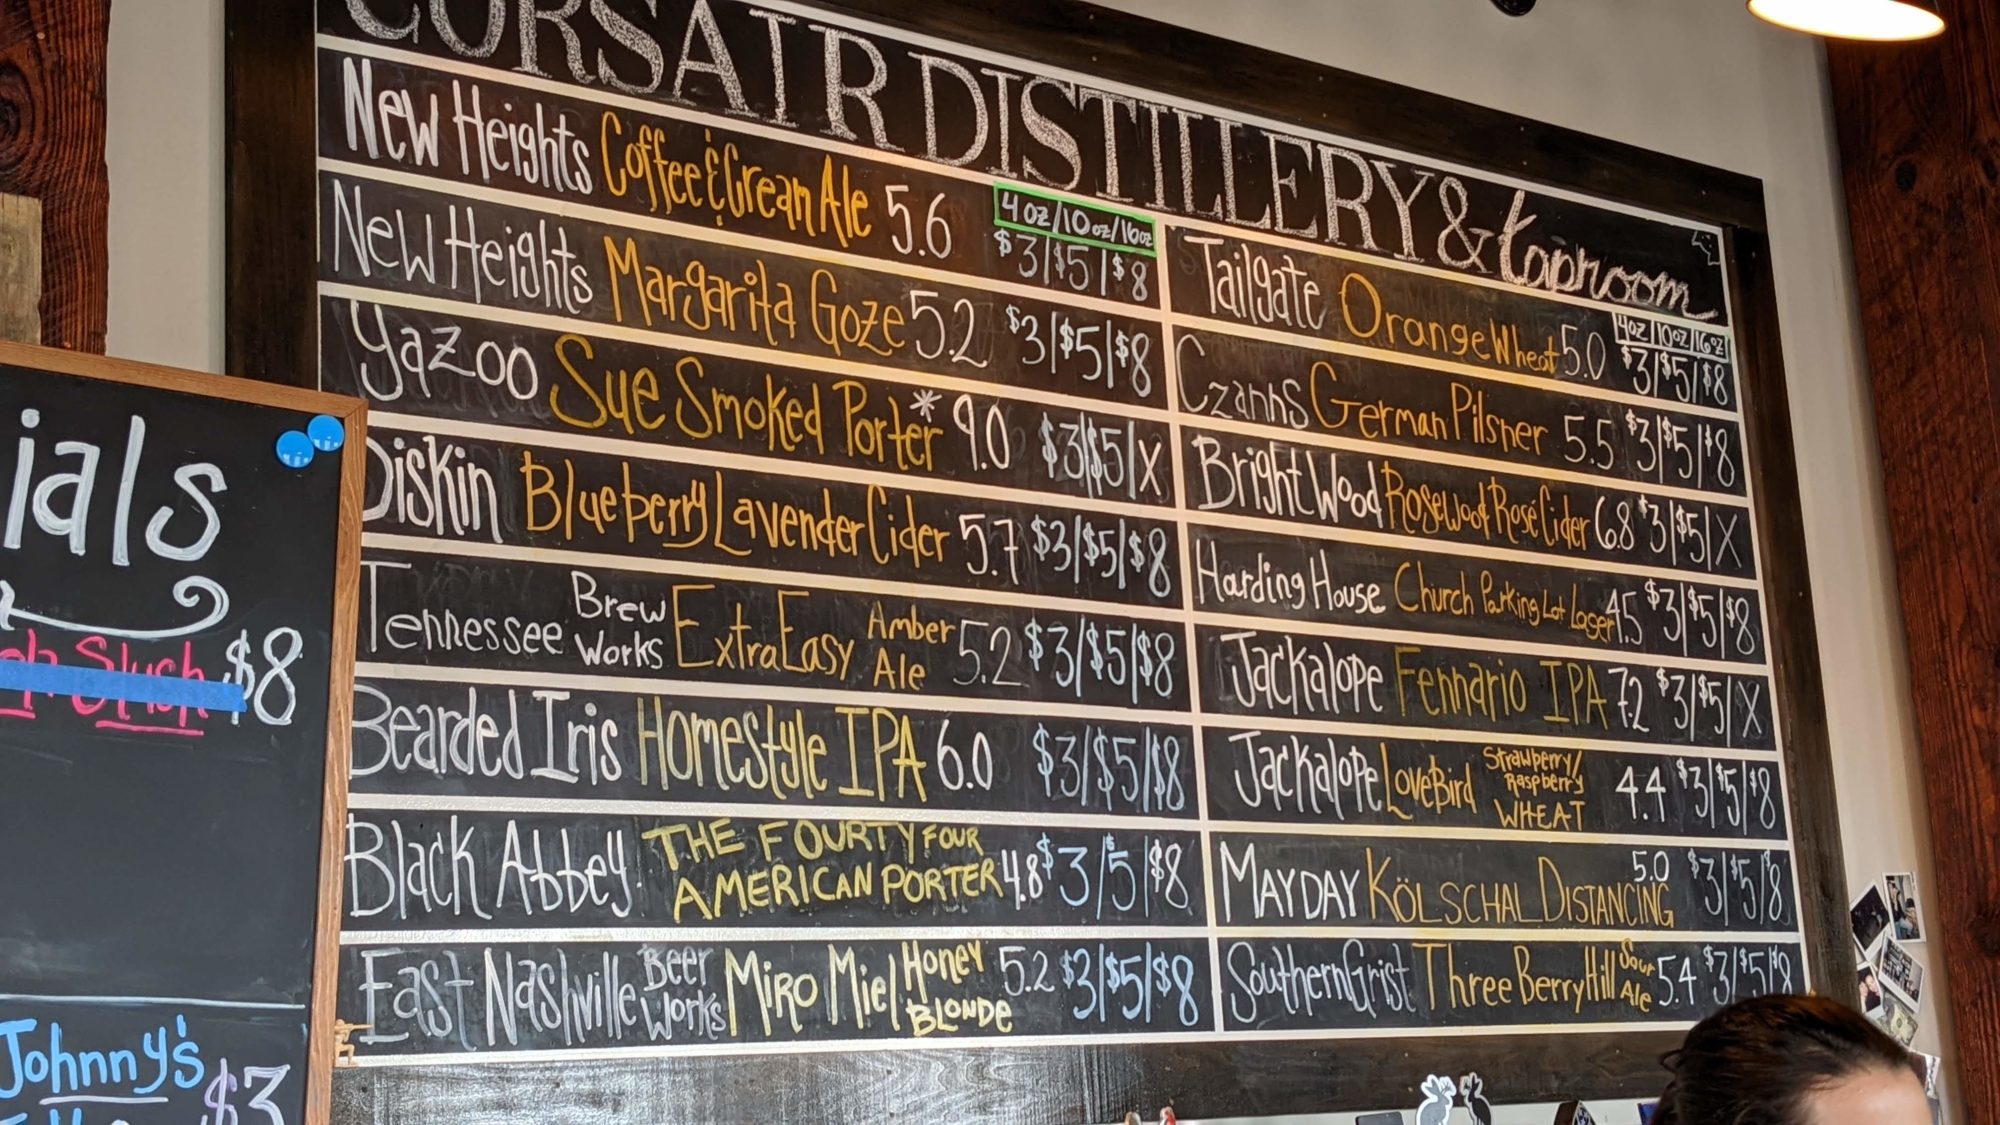 CORSAIR DISTILLERY & taproom
New Heights Coffee & Cream Ale 5.6
4oz/10oz/16oz
$3/$5/$8
New Heights Margarita Goze 5.2 $3/$5/$8
Yazoo Sue Smoked Porter* 9.0 $3/$5/X
Diskin Blueberry Lavender Cider 5.7 $3/$5/$8
Tennessee Brew Works Extra Easy Amber Ale 5.2 $3/$5/$8
Bearded Iris Homestyle IPA 6.0 $3/$5/$8
Black Abbey THE FOURTY FOUR AMERICAN PORTER 4.8 $3/$5/$8
East Nashville Beer Works Miro Miel Honey Blonde 5.2 $3/$5/$8
Tailgate Orange Wheat 5.0
4oz/10oz/16oz
$3/$5/$8
Czanns German Pilsner 5.5 $3/$5/$8
BrightWood Rosewood Rosé Cider 6.8 $3/$5/X
Harding House Church Parking Lot Lager 4.5 $3/$5/$8
Jackalope Fennario IPA 7.2 $3/$5/X
Jackalope LoveBird Strawberry/Raspberry WHEAT 4.4 $3/$5/$8
MAYDAY KÖLSCHAL DISTANCING 5.0 $3/$5/$8
SouthernGrist Three Berry Hill Sour Ale 5.4 $3/$5/$8
ials
Slush $8
Johnny's $3